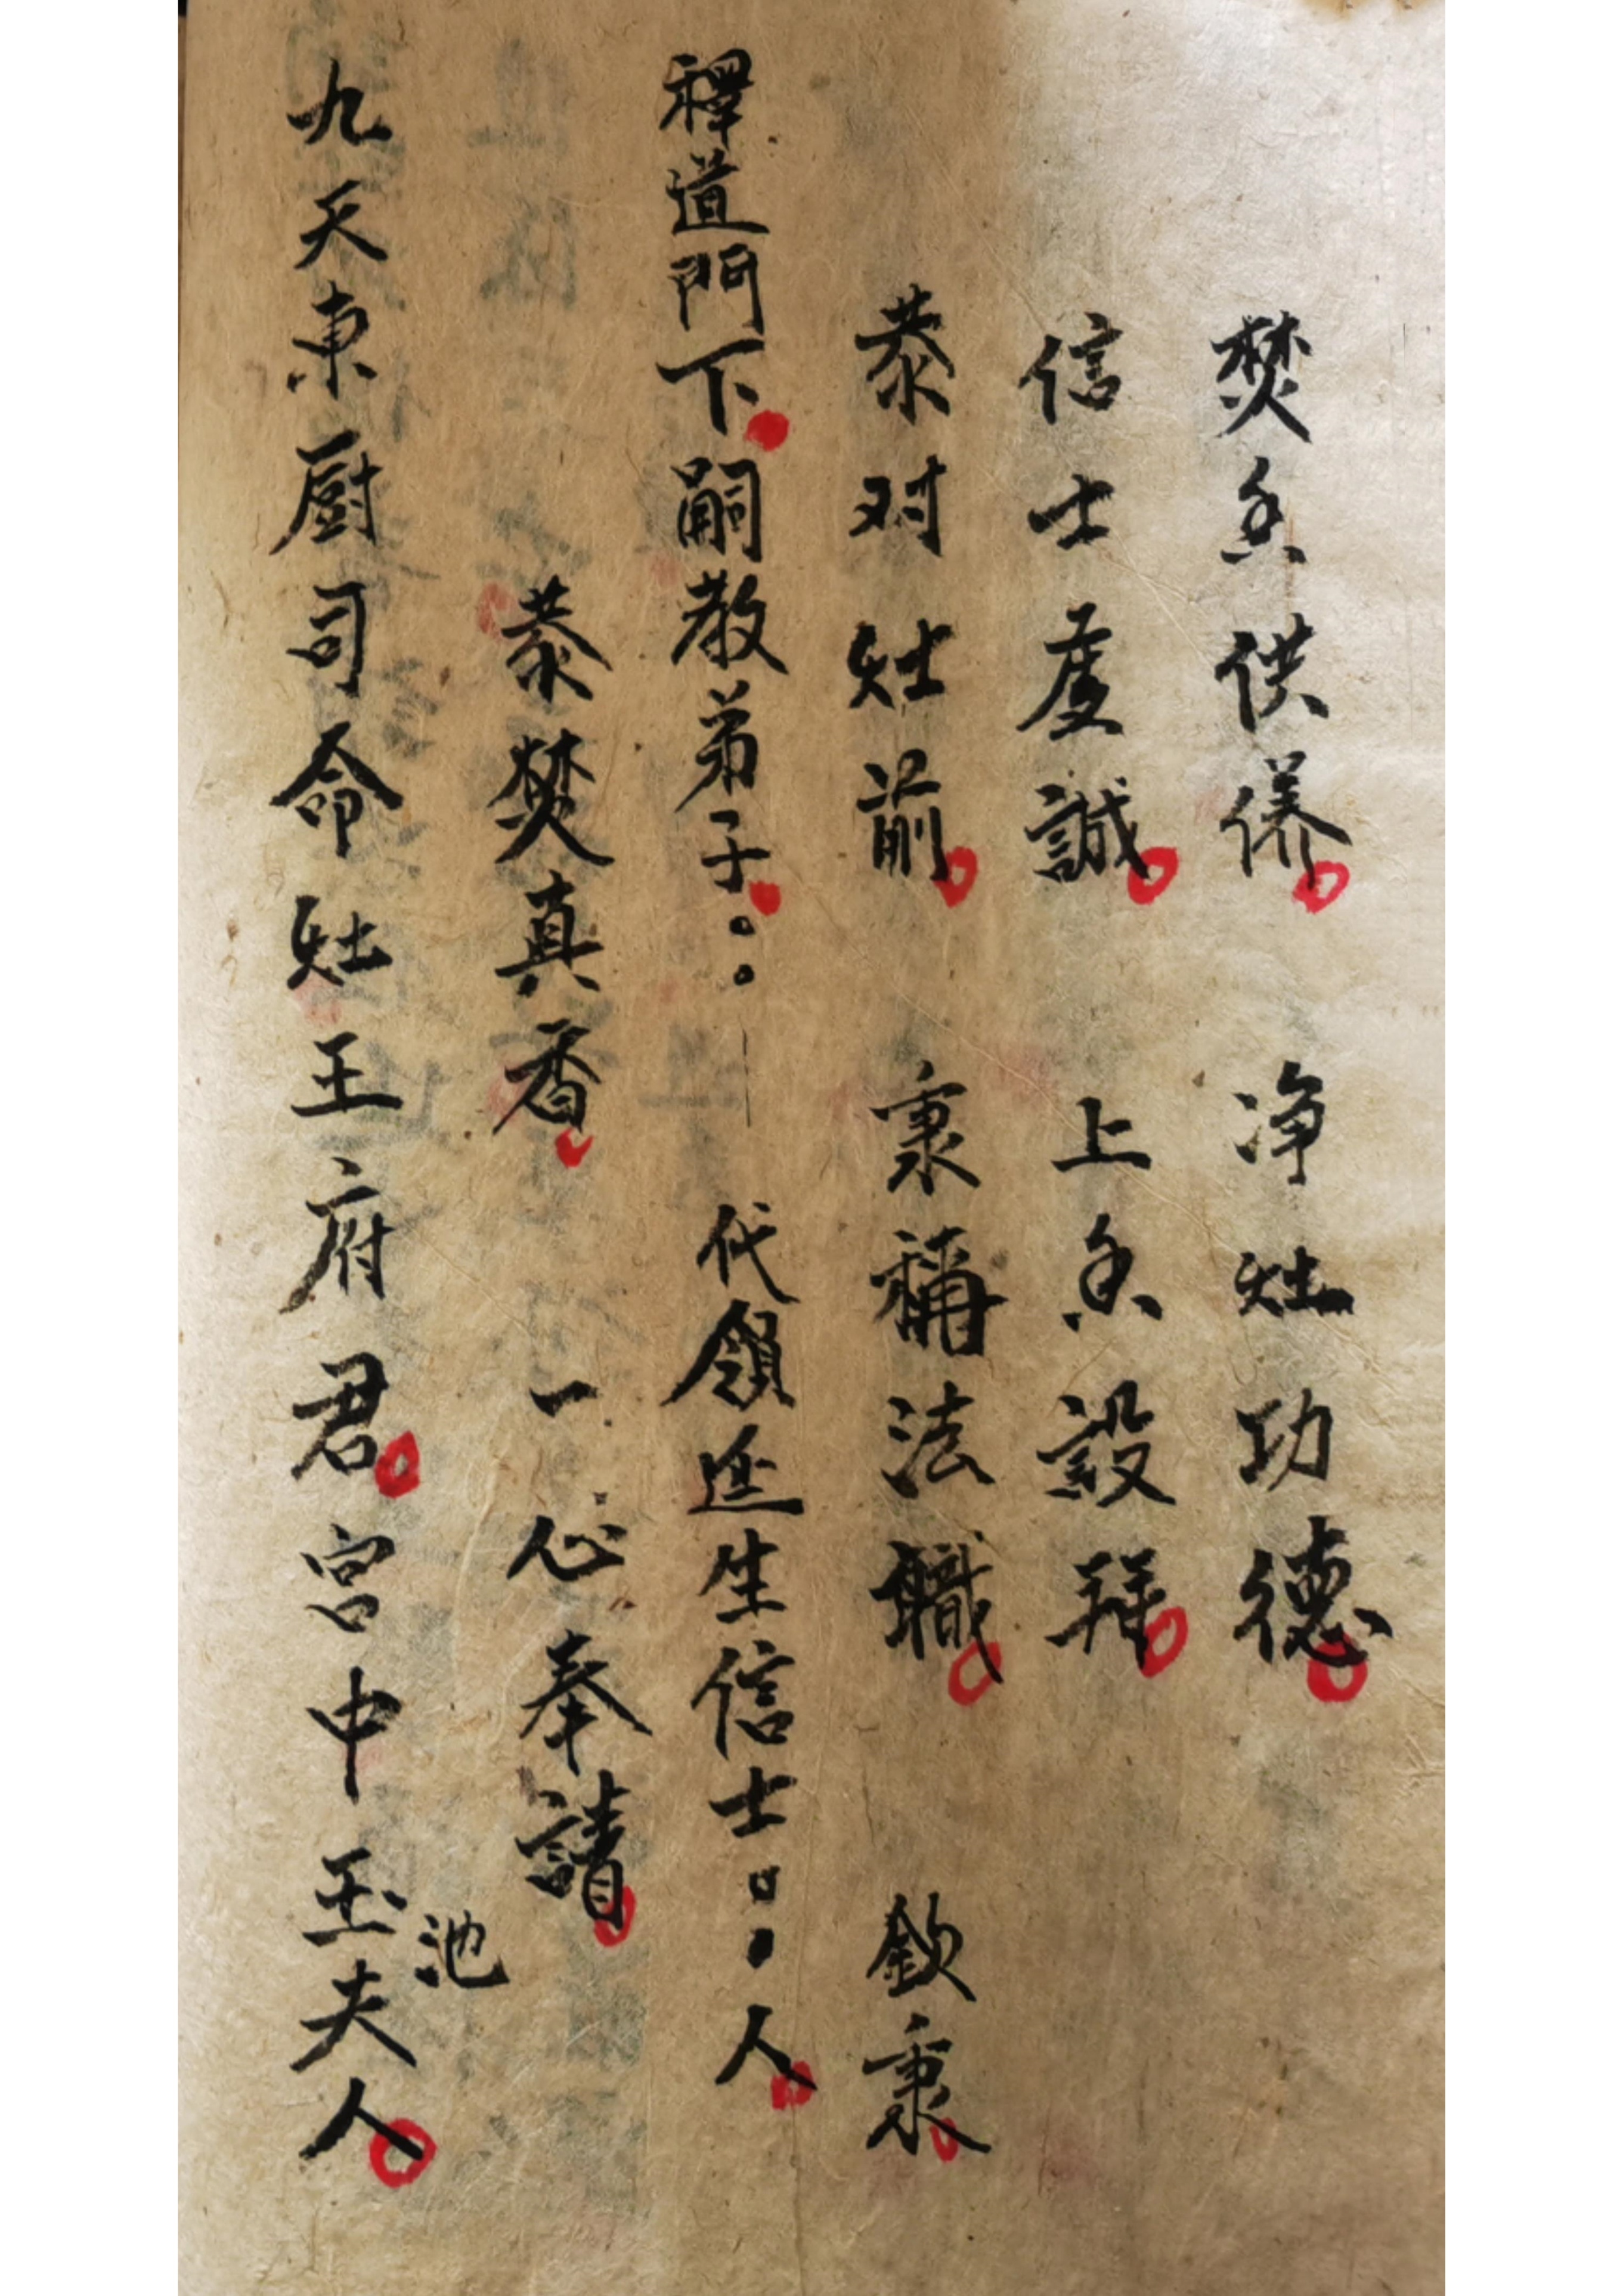 焚香供养。净灶功德。
信士虔誠。上香設拜。
恭对灶前。秉稱法職。欽秉。
釋道門下。嗣教弟子。：代領延生信士：人。
恭焚真香。一心奉請。
九天東厨司命灶王府君。宮中玉池夫人。